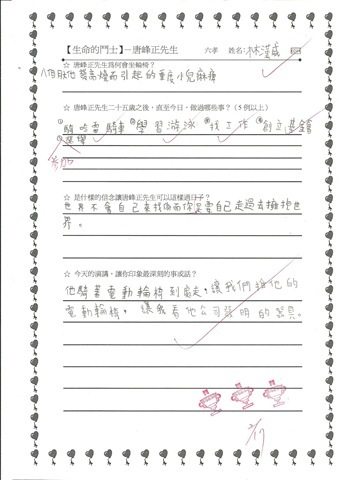 【生命的鬥士】─唐峰正先生 六孝 姓名:林漢威
☆ 唐峰正先生為何會坐輪椅?
八個月大他發高燒而引起的重度小兒麻痺
☆ 唐峰正先生二十五歲之後,直至今日,做過哪些事?(5 例以上)
①騎哈雷騎車②學習游泳③找工作④創立基金會
樂學
☆ 是什樣的信念讓唐峰正先生可以這樣過日子?
世界不會自己來找你而你是要自己走過去擁抱世
界。
☆ 今天的演講,讓你印象最深刻的事或話?
他騎著電動輪椅到處走,讓我們推他的
電動輪椅,讓我看他公司發明的器具。
2/17